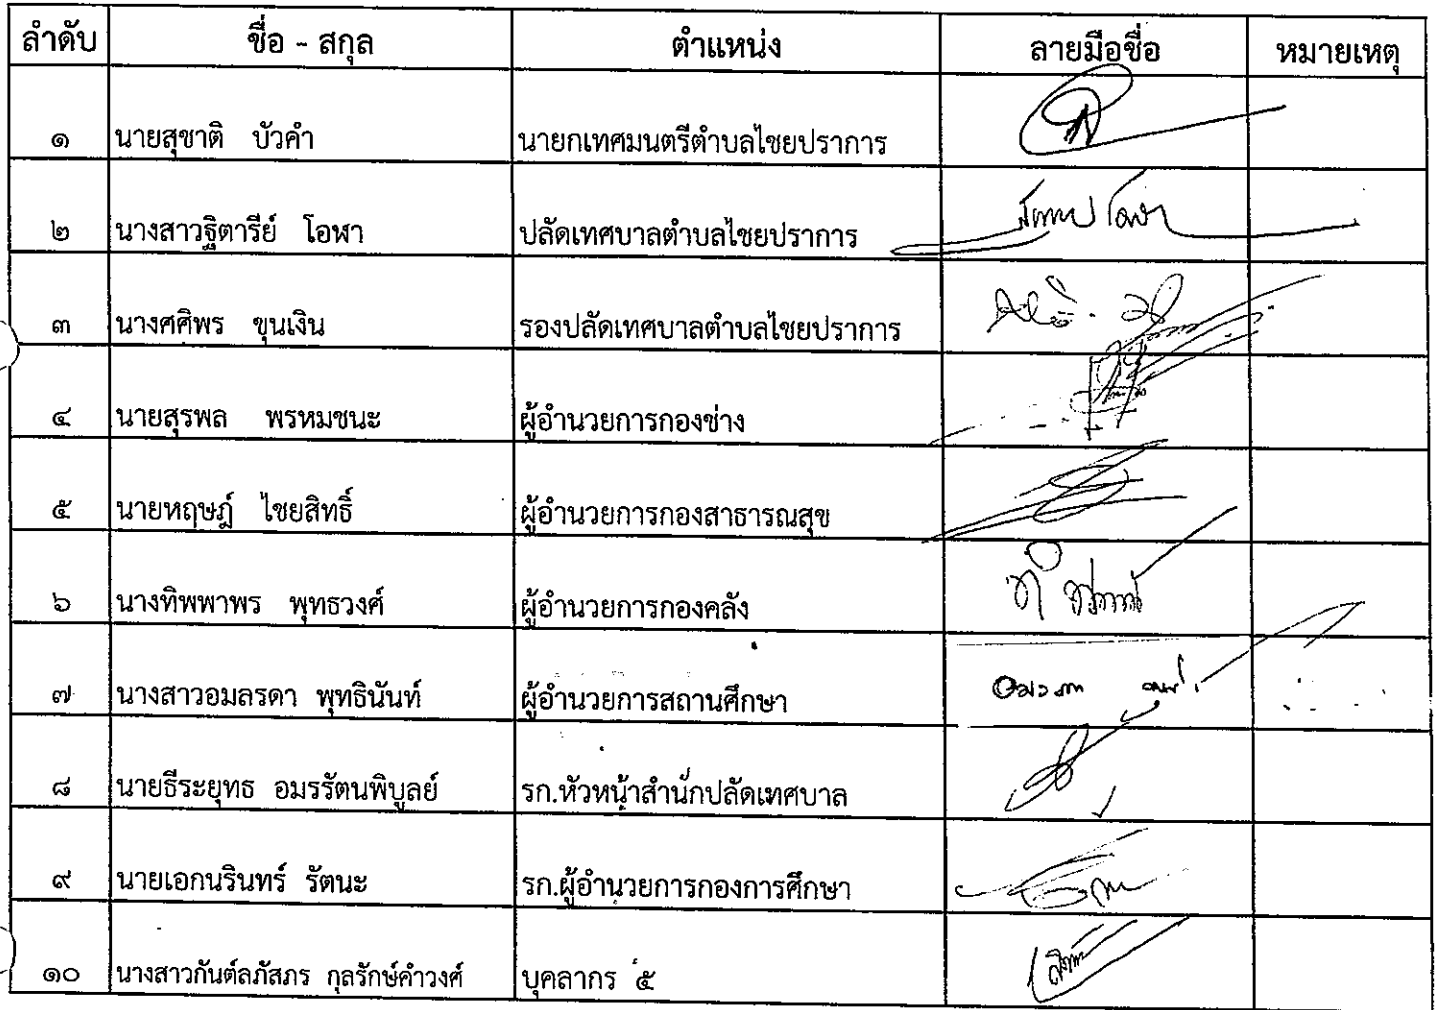 ลำดับ ชื่อ - สกุล ตำแหน่ง ลายมือชื่อ หมายเหตุ
๑ นายสุชาติ บัวคำ นายกเทศมนตรีตำบลไชยปราการ
๒ นางสาวฐิตารีย์ โอฬา ปลัดเทศบาลตำบลไชยปราการ
๓ นางศศิพร ขุนเงิน รองปลัดเทศบาลตำบลไชยปราการ
๔ นายสุรพล พรหมชนะ ผู้อำนวยการกองช่าง
๕ นายหฤษฎ์ ไชยสิทธิ์ ผู้อำนวยการกองสาธารณสุข
๖ นางทิพพาพร พุทธวงศ์ ผู้อำนวยการกองคลัง
๗ นางสาวอมลรดา พุทธินันท์ ผู้อำนวยการสถานศึกษา
๘ นายธีระยุทธ อมรรัตนพิบูลย์ รก.หัวหน้าสำนักปลัดเทศบาล
๙ นายเอกนรินทร์ รัตนะ รก.ผู้อำนวยการกองการศึกษา
๑๐ นางสาวกันต์ลภัสภร กุลรักษ์คำวงศ์ บุคลากร ๕